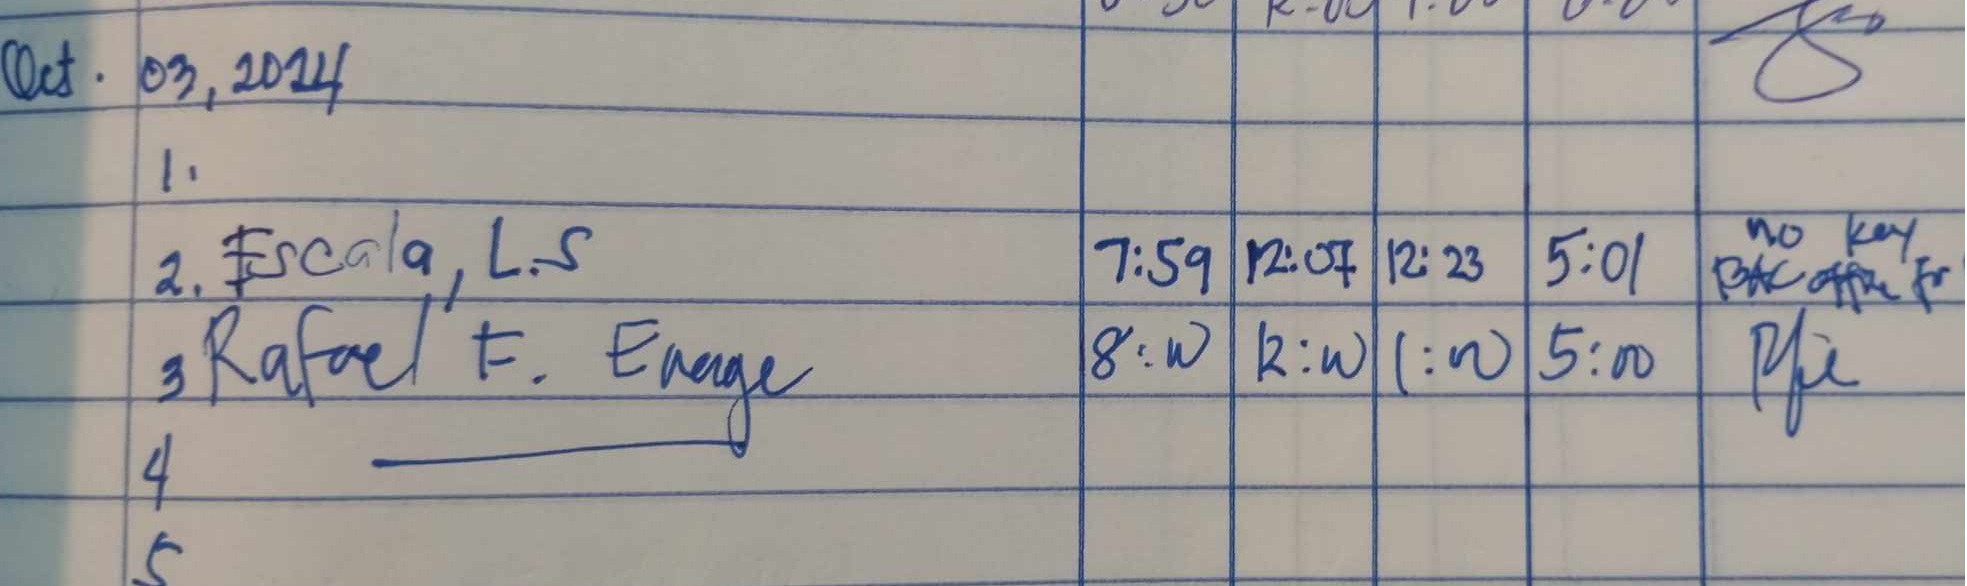 Oct. 03, 2024
1.
2. Escala, L.S 7:59 12:07 12:23 5:01 no key
BAC office
3 Rafael F. Enage 8:00 12:00 1:00 5:00
4
5